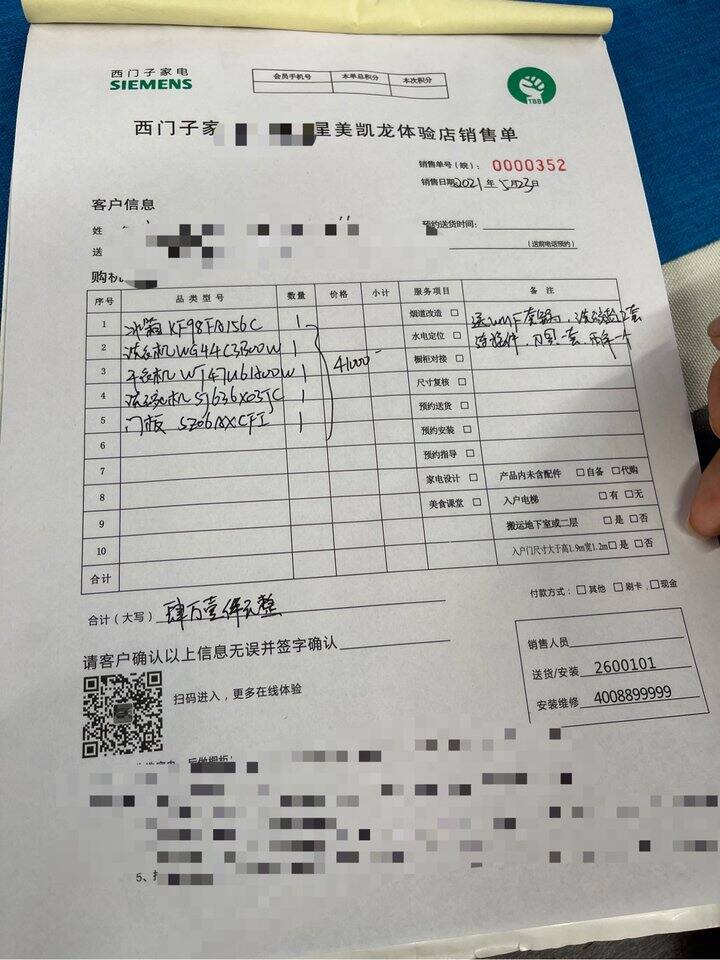 西门子家电
SIEMENS
会员手机号 本单总积分 本次积分
TBB
西门子家 星美凯龙体验店销售单
销售单号(皖): 0000352
销售日期2021年5月23日
客户信息
预约送货时间:
送
(送前电话预约)
购机
序号 品类型号 数量 价格 小计 服务项目 备注
1 冰箱 KF98FA156C 1 烟道改造 □
2 洗衣机 WG44C3B00W 1 水电定位 □
3 干衣机 WT47U6H00W 1 41000- 橱柜对接 □
4 洗碗机 SJ636X03JC 1 尺寸复核 □
5 门板 SZ06AXCFI 1 预约送货 □
6 预约安装 □
7 预约指导 □
8 家电设计 □ 产品内未含配件 □自备 □代购
9 美食课堂 □ 入户电梯 □有 □无
10 搬运地下室或二层 □是 □否
合计 入户门尺寸大于高1.9m宽1.2m□是 □否
合计(大写) 肆万壹仟元整
付款方式: □其他 □刷卡 □现金
请客户确认以上信息无误并签字确认
销售人员
送货/安装 2600101
安装维修 4008899999
扫码进入,更多在线体验
5、